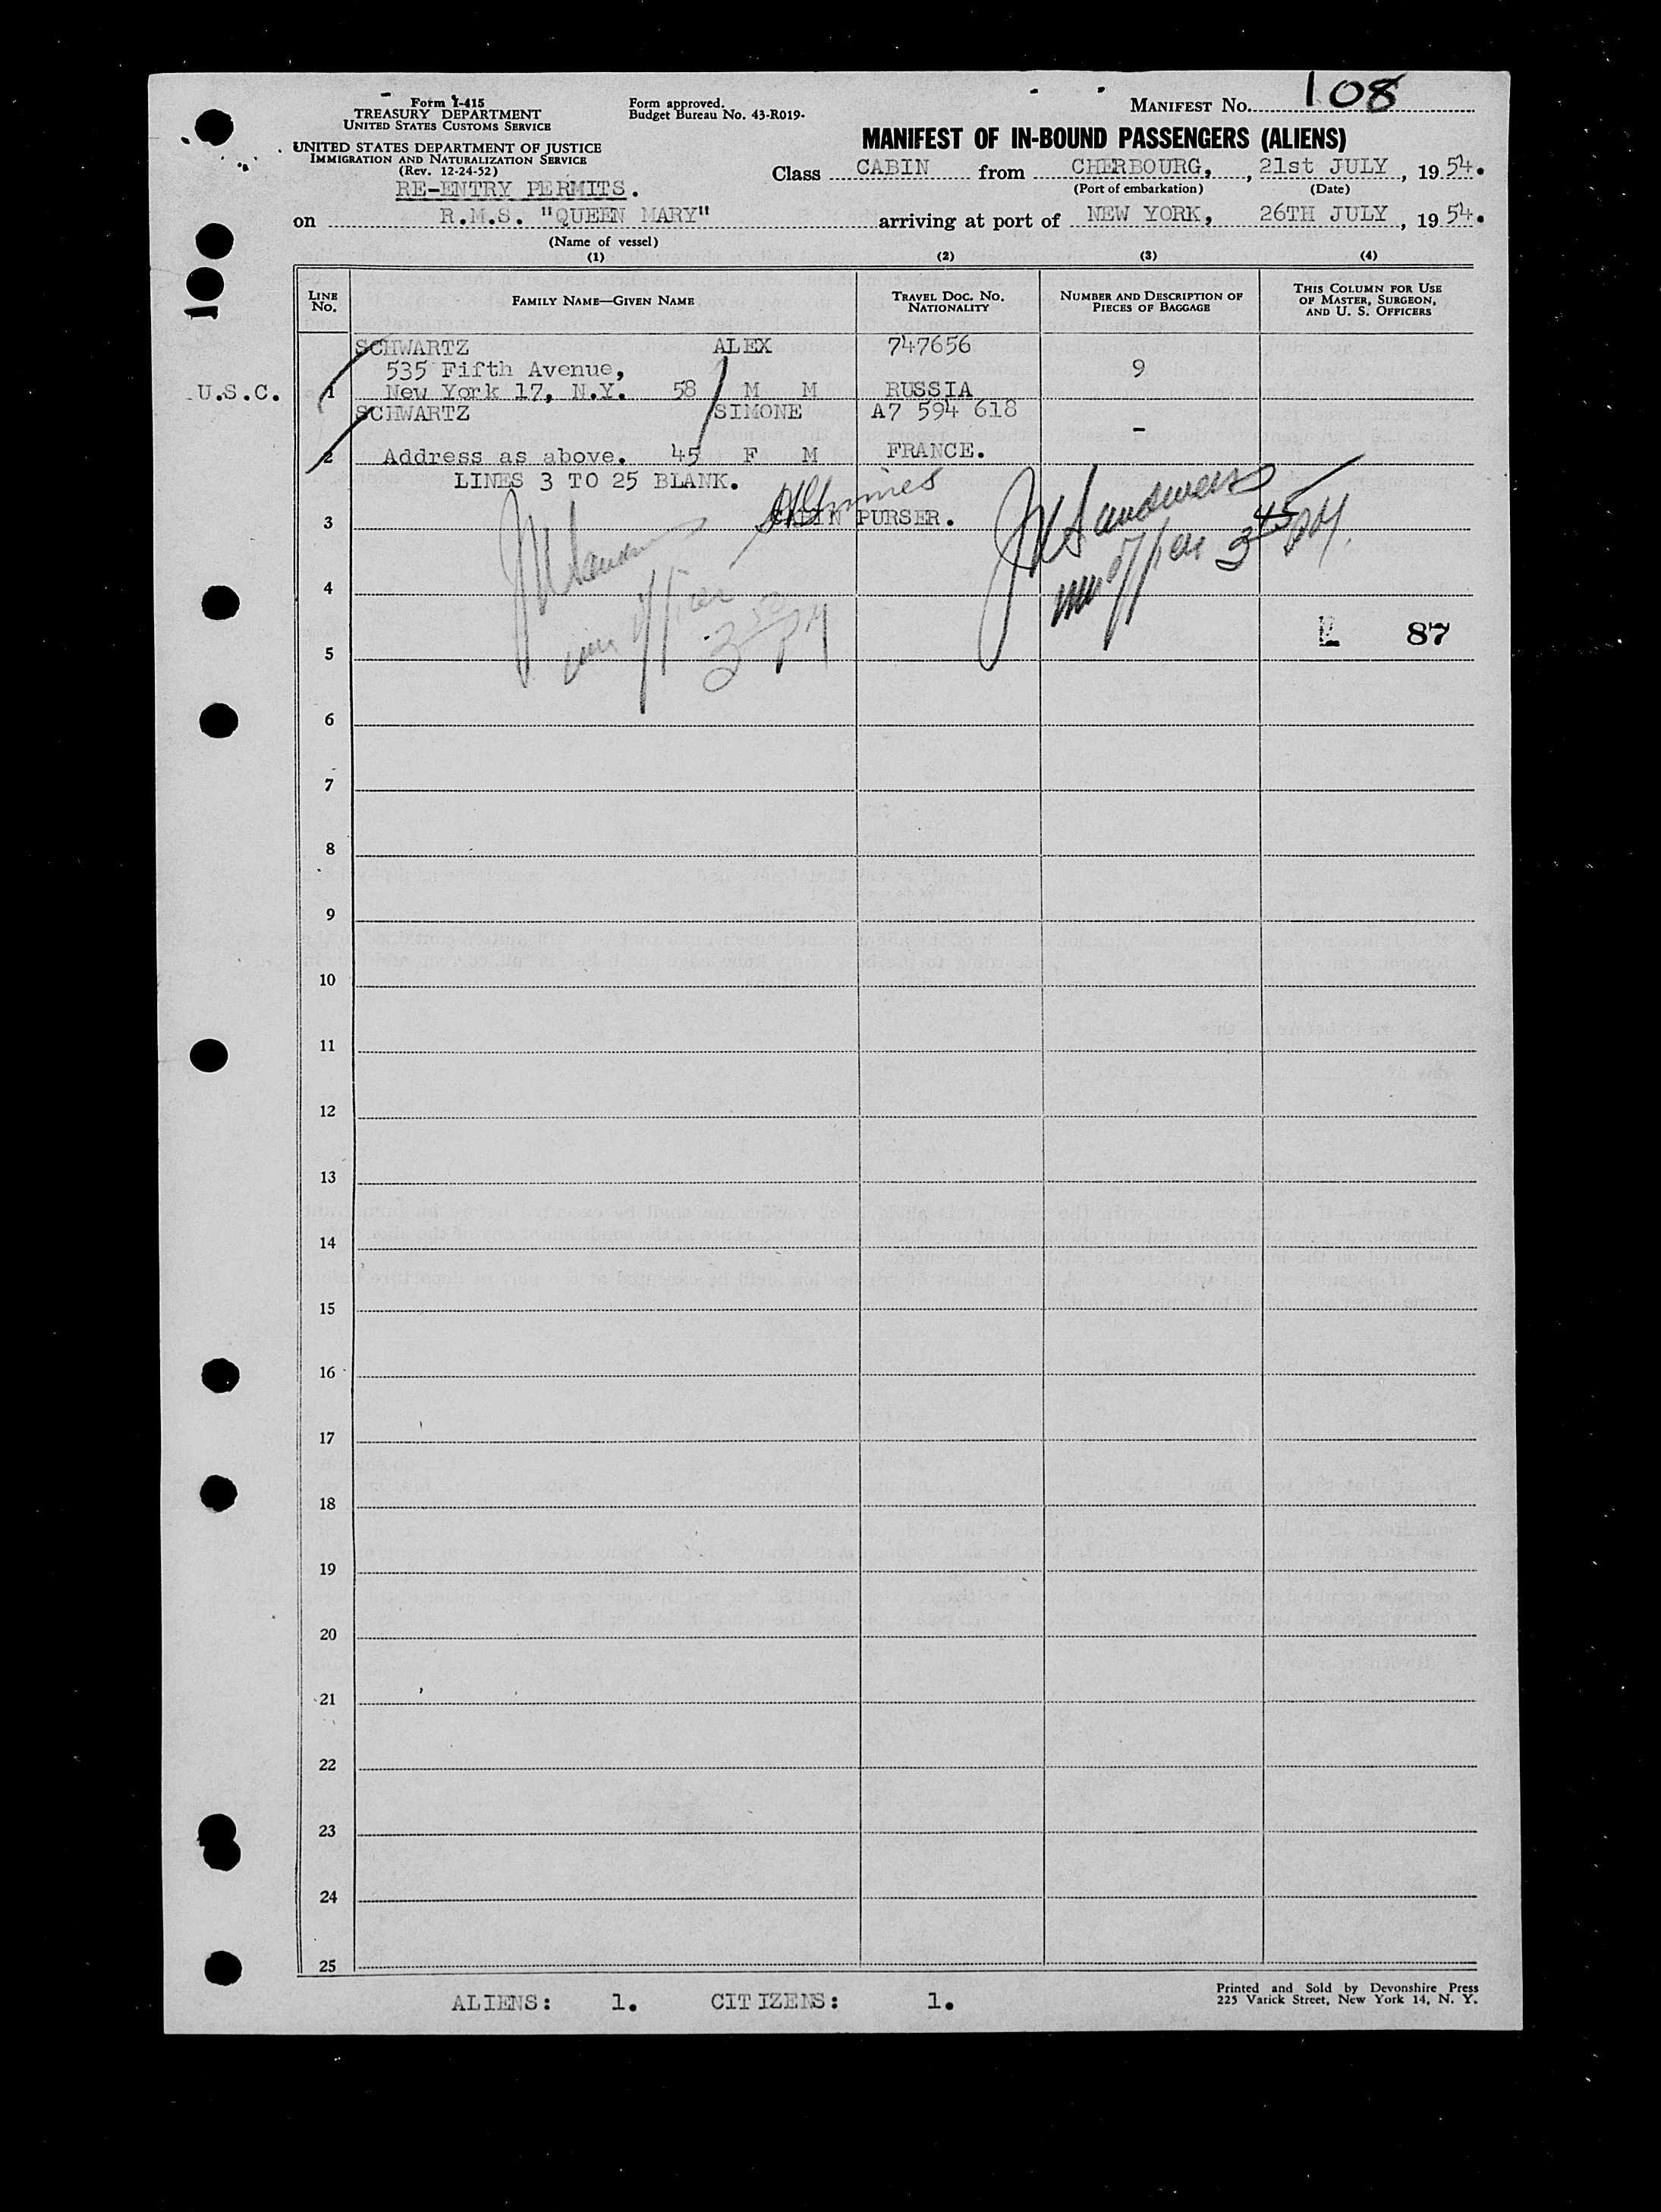 Form I-415
TREASURY DEPARTMENT
UNITED STATES CUSTOMS SERVICE
UNITED STATES DEPARTMENT OF JUSTICE
IMMIGRATION AND NATURALIZATION SERVICE
(Rev. 12-24-52)
RE-ENTRY PERMITS.
Form approved.
Budget Bureau No. 43-R019-
MANIFEST No. 108
MANIFEST OF IN-BOUND PASSENGERS (ALIENS)
Class CABIN from CHERBOURG, , 21st JULY , 19 54.
(Port of embarkation) (Date)
on R.M.S. "QUEEN MARY" arriving at port of NEW YORK, 26TH JULY , 19 54.
(Name of vessel)
(1) (2) (3) (4)
100
LINE No. FAMILY NAME—GIVEN NAME TRAVEL DOC. NO. NATIONALITY NUMBER AND DESCRIPTION OF PIECES OF BAGGAGE THIS COLUMN FOR USE OF MASTER, SURGEON, AND U. S. OFFICERS
SCHWARTZ ALEX 747656
535 Fifth Avenue, 9
U.S.C. 1 New York 17, N.Y. 58 M M RUSSIA
SCHWARTZ SIMONE A7 594 618
-
2 Address as above. 45 F M FRANCE.
LINES 3 TO 25 BLANK.
3 CABIN PURSER.
3 45 PM.
4
3 50 PM
L 87
5
6
7
8
9
10
11
12
13
14
15
16
17
18
19
20
21
22
23
24
25
ALIENS: 1. CITIZENS: 1.
Printed and Sold by Devonshire Press
225 Varick Street, New York 14, N. Y.